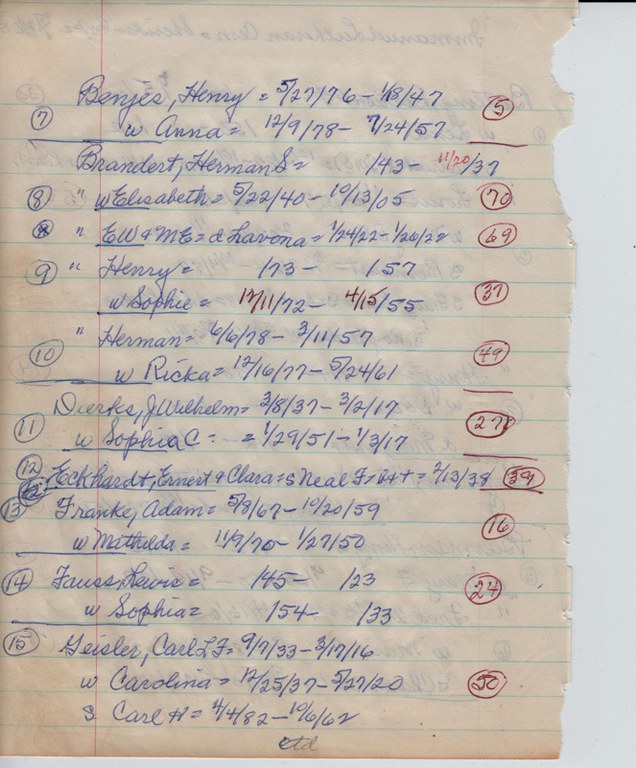 Benjes, Henry = 5/27/76 - 1/18/47 (5)
(7) w Anna = 12/9/78 - 7/24/57
Brandert, Herman S = /43 - 11/20/37
(8) " w Elisabeth = 5/22/40 - 10/13/05 (70)
" EW & ME = d Lavona = 1/24/22 - 1/26/22 (69)
(9) " Henry = /73 - /57
w Sophie = 12/11/72 - 4/15/55 (37)
" Herman = 6/6/78 - 3/11/57
(10) w Ricka = 12/16/77 - 5/24/61 (49)
Dierks, J Wilhelm = 3/8/37 - 3/2/17
(11) w Sophia C = = 1/29/51 - 1/3/17
(12) Eckhardt, Ernest & Clara = s Neal F = = 2/13/38
(13) Franke, Adam = 5/8/67 - 10/20/59
w Mathilda = 11/9/70 - 1/27/50 (16)
(14) Fauss, Lewis = /45 - /23
w Sophia = /54 - /33 (24)
(15) Geisler, Carl L F = 9/7/33 - 3/17/16
w Carolina = 12/25/37 - 5/27/20
s Carl H = 4/4/82 - 10/6/62
ctd